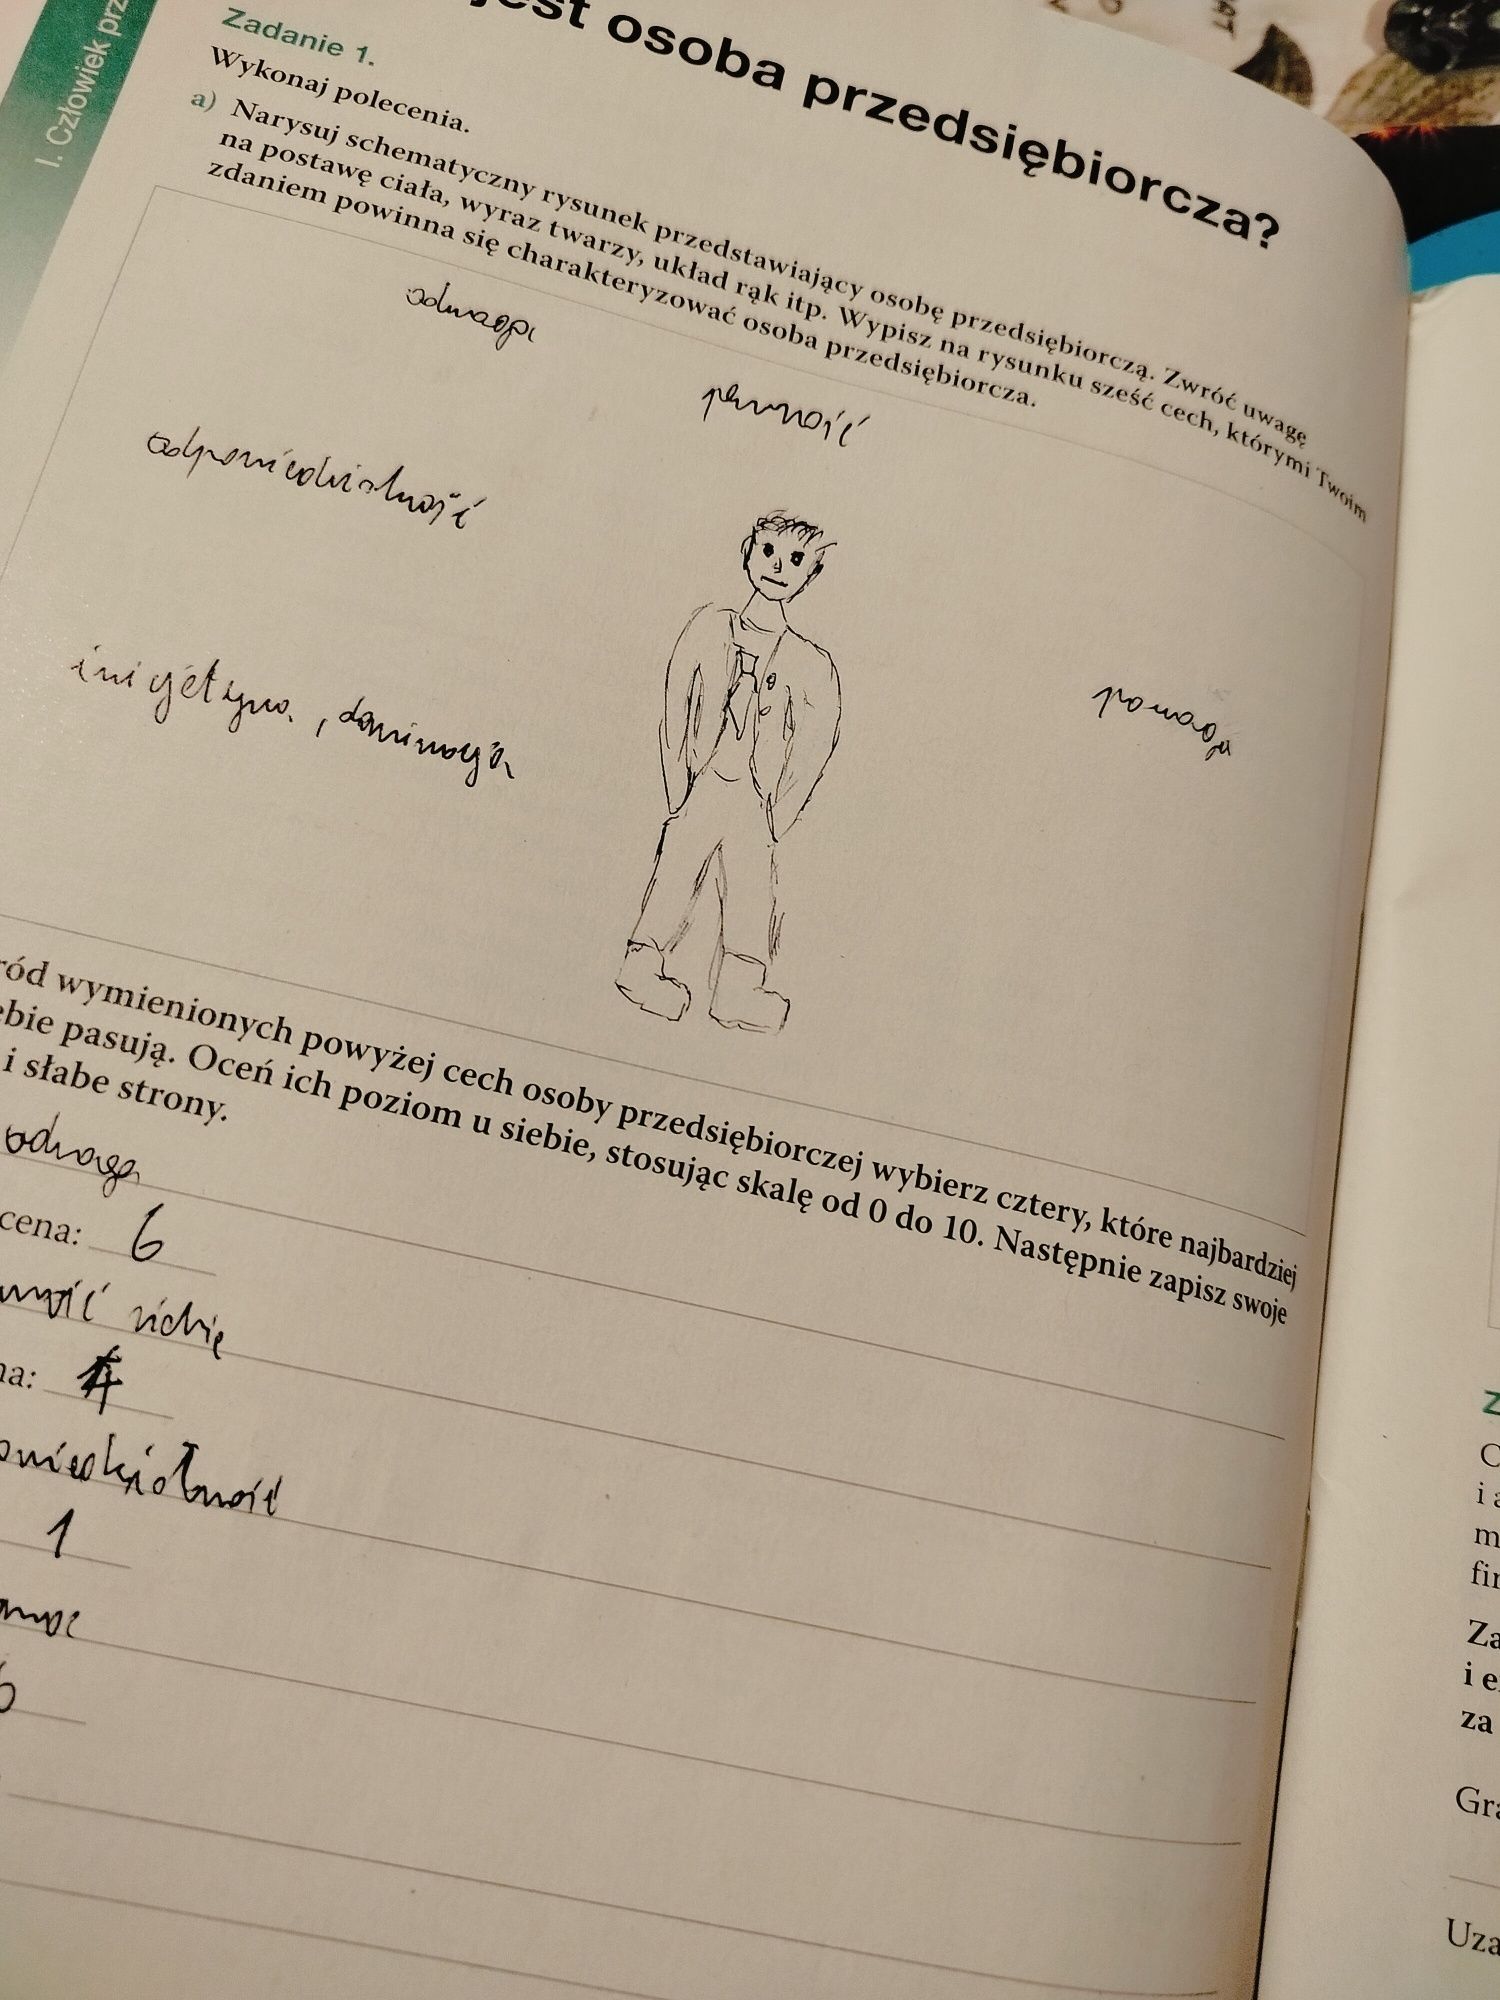 I. Człowiek prz
jest osoba przedsiębiorcza?
Zadanie 1.
Wykonaj polecenia.
a) Narysuj schematyczny rysunek przedstawiający osobę przedsiębiorczą. Zwróć uwagę
na postawę ciała, wyraz twarzy, układ rąk itp. Wypisz na rysunku sześć cech, którymi Twoim
zdaniem powinna się charakteryzować osoba przedsiębiorcza.
odwaga
pewność
odpowiedzialność
pomaga
ród wymienionych powyżej cech osoby przedsiębiorczej wybierz cztery, które najbardziej
ebie pasują. Oceń ich poziom u siebie, stosując skalę od 0 do 10. Następnie zapisz swoje
i słabe strony.
odwaga
cena: 6
wność siebie
na: 4
1
Gra
Uza